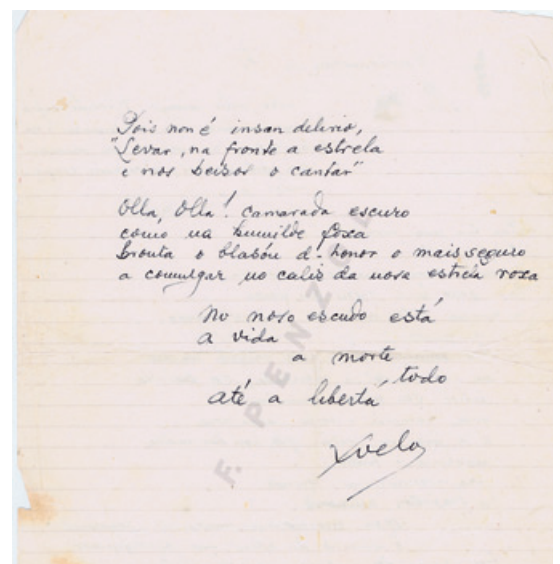 Pois non é insan delirio,
"Levar, na fronte a estrela
e nos beizos o cantar"
Olla, Olla! camarada escuro
como na humilde foxa
bronta o blasón d-honor o mais seguro
a comulgar no caliz da nova estrela roxa
No noso escudo está
a vida
a morte
todo
até a libertá
Xvelo
F. PENZOL